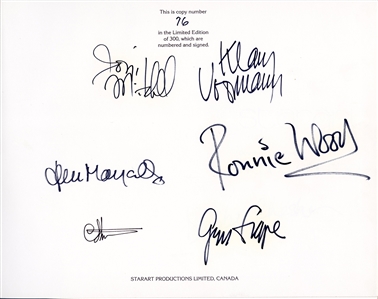 This is copy number
76
in the Limited Edition
of 300, which are
numbered and signed.
Joni Mitchell
Klaus
Voormann
John Mayall
Ronnie Wood
STARART PRODUCTIONS LIMITED, CANADA